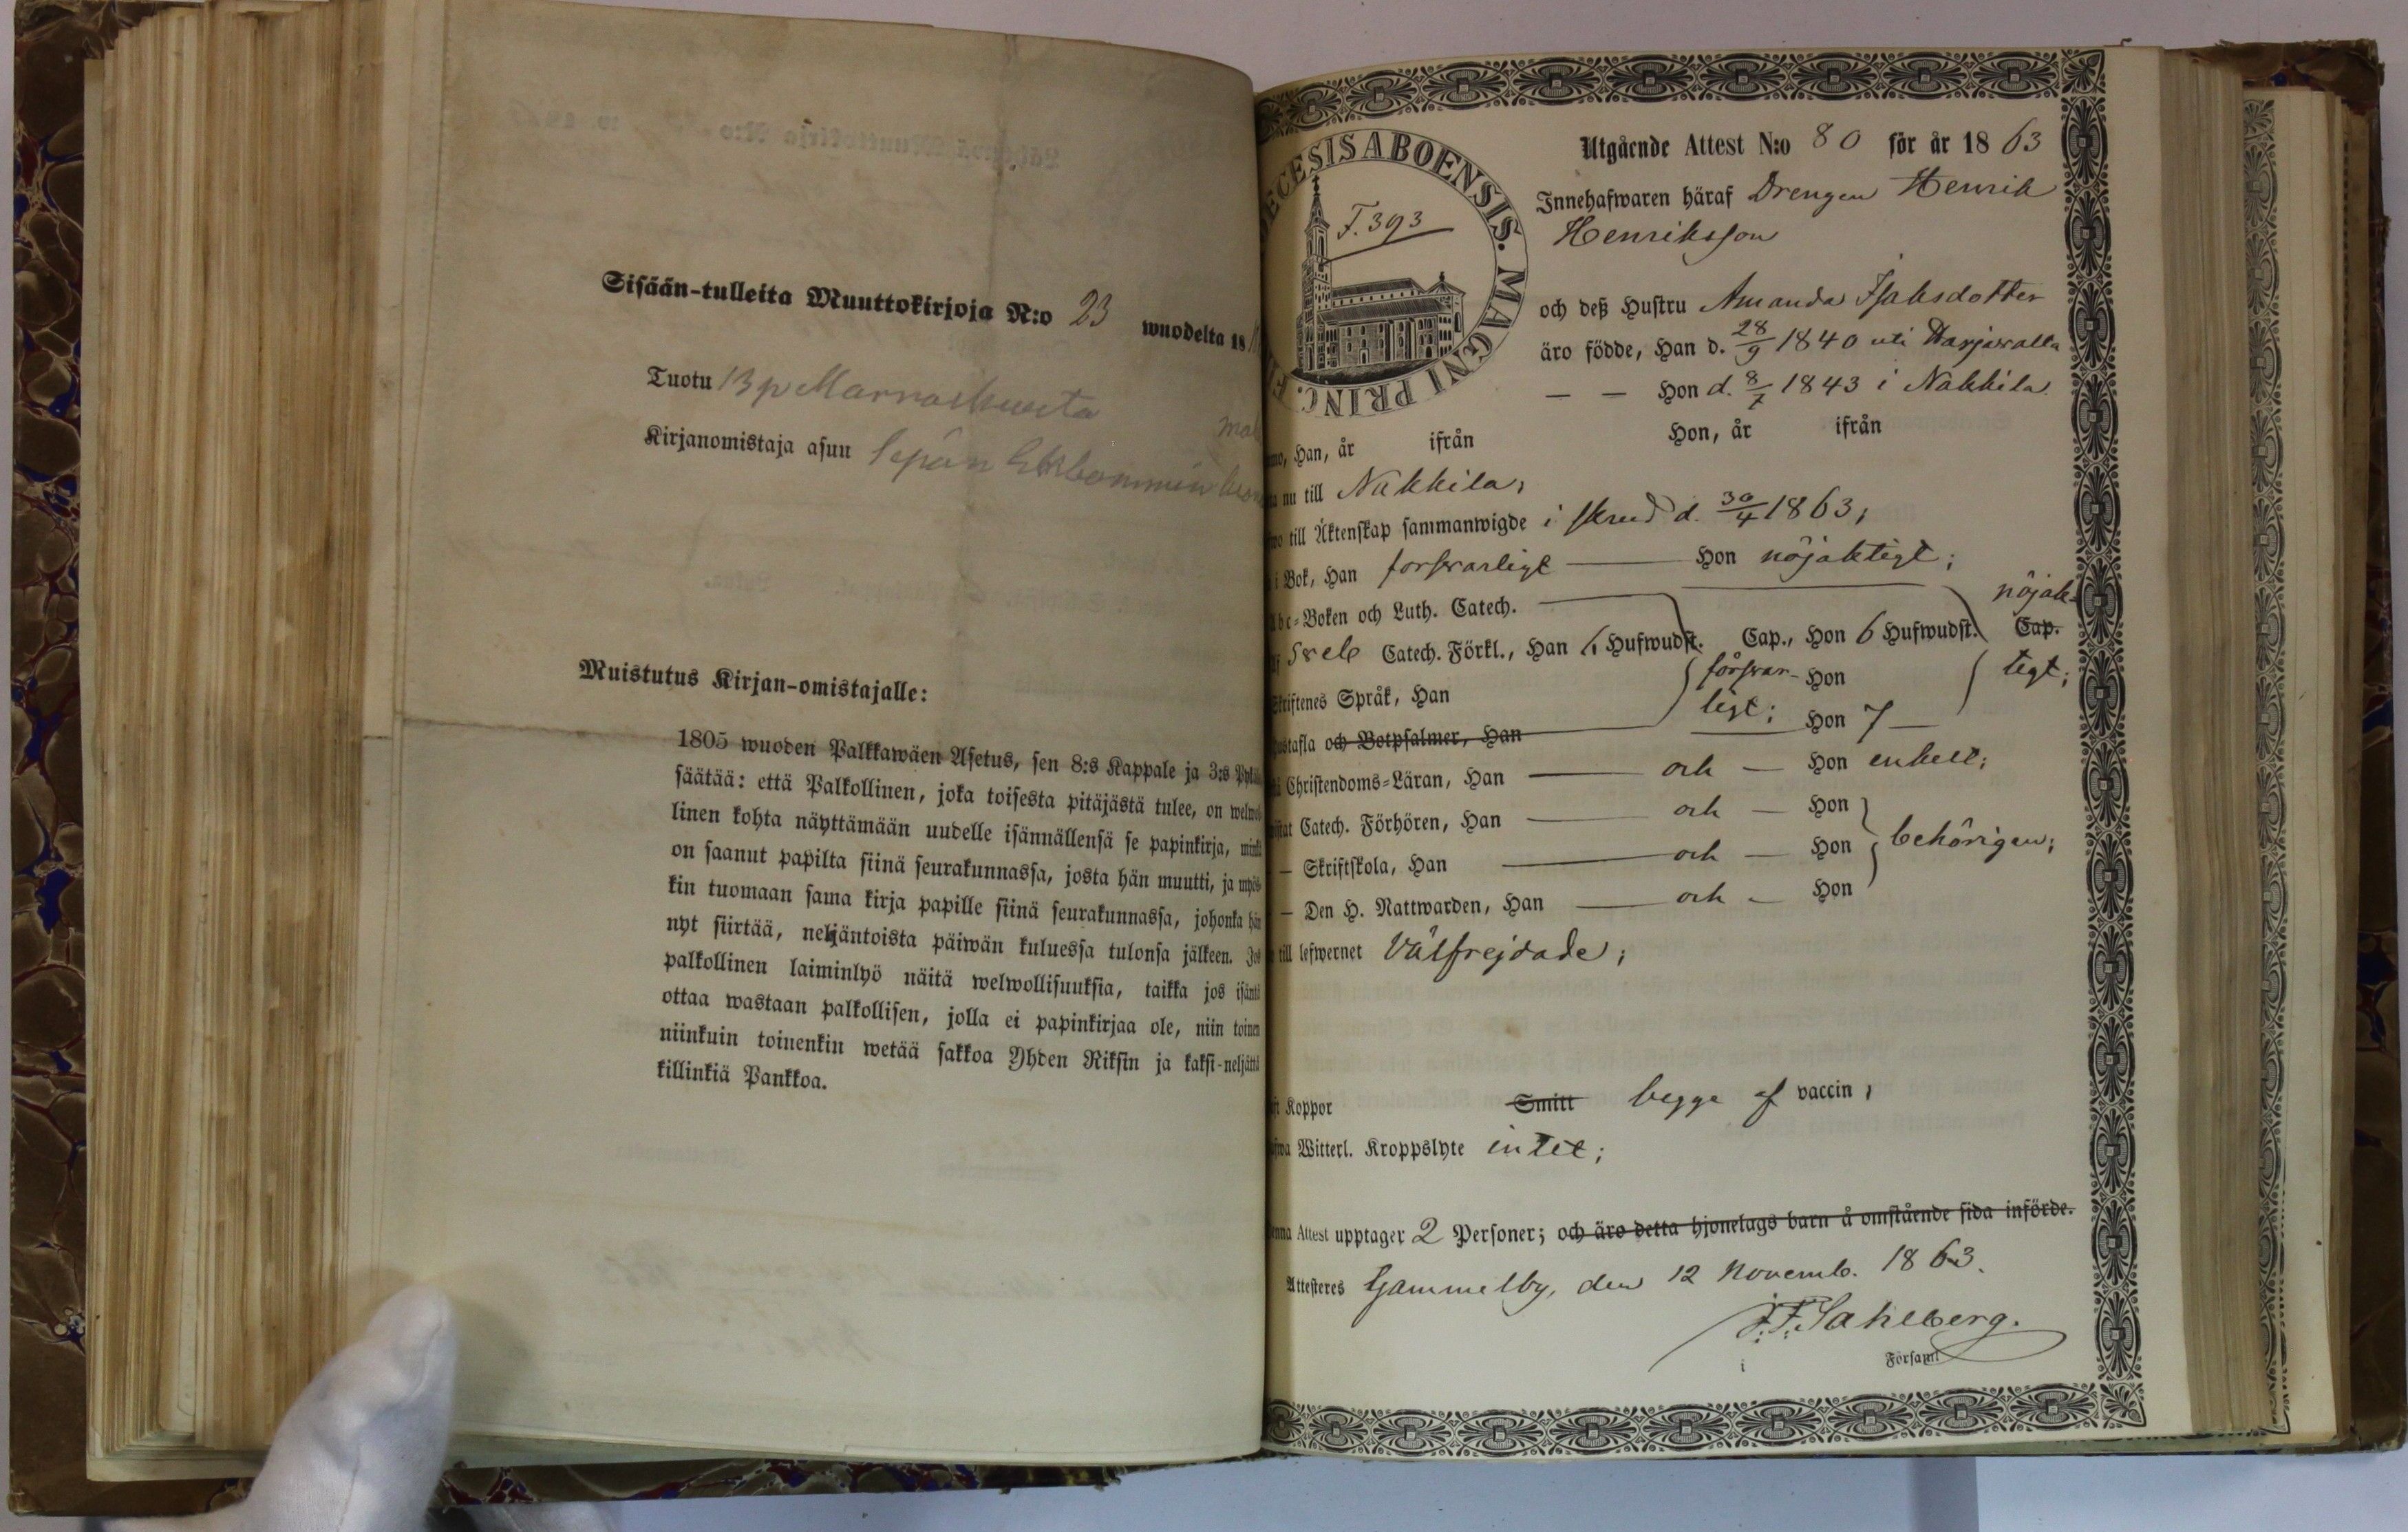 Sisään-tulleita Muuttokirjoja N:o 23 wuodelta 18
Tuotu 13 p Marraskuuta
Kirjanomistaja asuu Sepän
Muistutus Kirjan-omistajalle:
1805 wuoden Palkkawäen Asetus, sen 8:s Kappale ja 3:s
säätää: että Palkollinen, joka toisesta pitäjästä tulee, on welwol
linen kohta näyttämään uudelle isännällensä se papinkirja, minkä
on saanut papilta siinä seurakunnassa, josta hän muutti, ja myös
kin tuomaan sama kirja papille siinä seurakunnassa, johonka hän
nyt siirtää, neljäntoista päiwän kuluessa tulonsa jälkeen. Jos
palkollinen laiminlyö näitä welwollisuuksia, taikka jos isäntä
ottaa wastaan palkollisen, jolla ei papinkirjaa ole, niin toinen
niinkuin toinenkin wetää sakkoa Yhden Riksin ja kaksi-neljättä
killinkiä Pankkoa.
ECESIS ABOENSIS. MAGNI PRINC. F
F. 393
Utgående Attest N:o 80 för år 1863
Innehafwaren häraf Drengen Henrik
Henriksson
och deß Hustru Amanda Isaksdotter
äro födde, Han d. 28/9 1840 uti Harjavalla
— — Hon d. 8/7 1843 i Nakkila
Han, år ifrån Hon, år ifrån
nu till Nakkila,
till Äktenskap sammanwigde i skrud d. 30/4 1863;
i Bok, Han försvarligt — Hon nöjaktigt;
Abc-Boken och Luth. Catech. — nöjak-
Sveb Catech. Förkl., Han 6 Hufwudst. Cap., Hon 6 Hufwudst. Cap.
Skriftenes Språk, Han försvar- Hon tigt;
ustafla och Botpsalmer, Han ligt; Hon
Christendoms-Läran, Han — och — Hon enkelt;
Catech. Förhören, Han — och — Hon
— Skriftskola, Han — och — Hon behörigen;
— Den H. Nattwarden, Han — och — Hon
till lefwernet Välfrejdade;
Koppor Smitt begge af vaccin,
Witterl. Kroppslyte intet;
enna Attest upptager 2 Personer; och äro detta hjonelags barn å omstående sida införde.
Attesteres Gammelby, den 12 Novemb. 1863.
J. F. Sahlberg.
i Församl